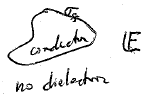 σs
conductor
𝔼
no dielectron